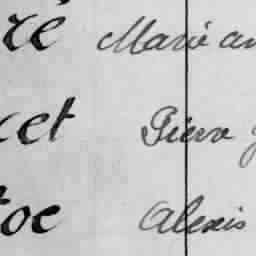 ré Marie an
cet Pierre J
toc Alexis